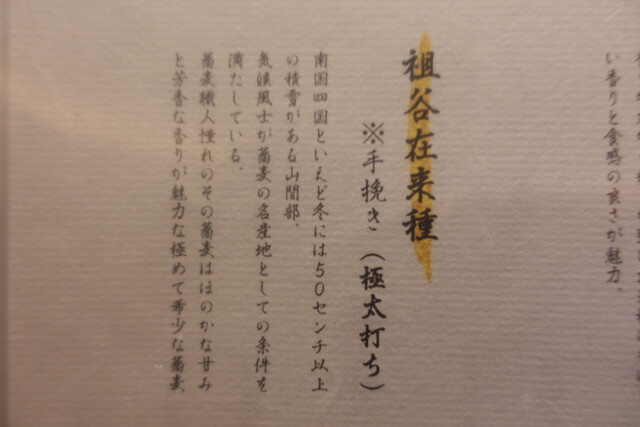 い香りと食感の良さが魅力.
祖谷在来種
※手挽き（極太打ち）
南国四国といえど冬には50センチ以上
の積雪がある山間部.
気候風土が蕎麦の名産地としての条件を
満たしている.
蕎麦職人憧れのその蕎麦はほのかな甘み
と芳香な香りが魅力な極めて希少な蕎麦